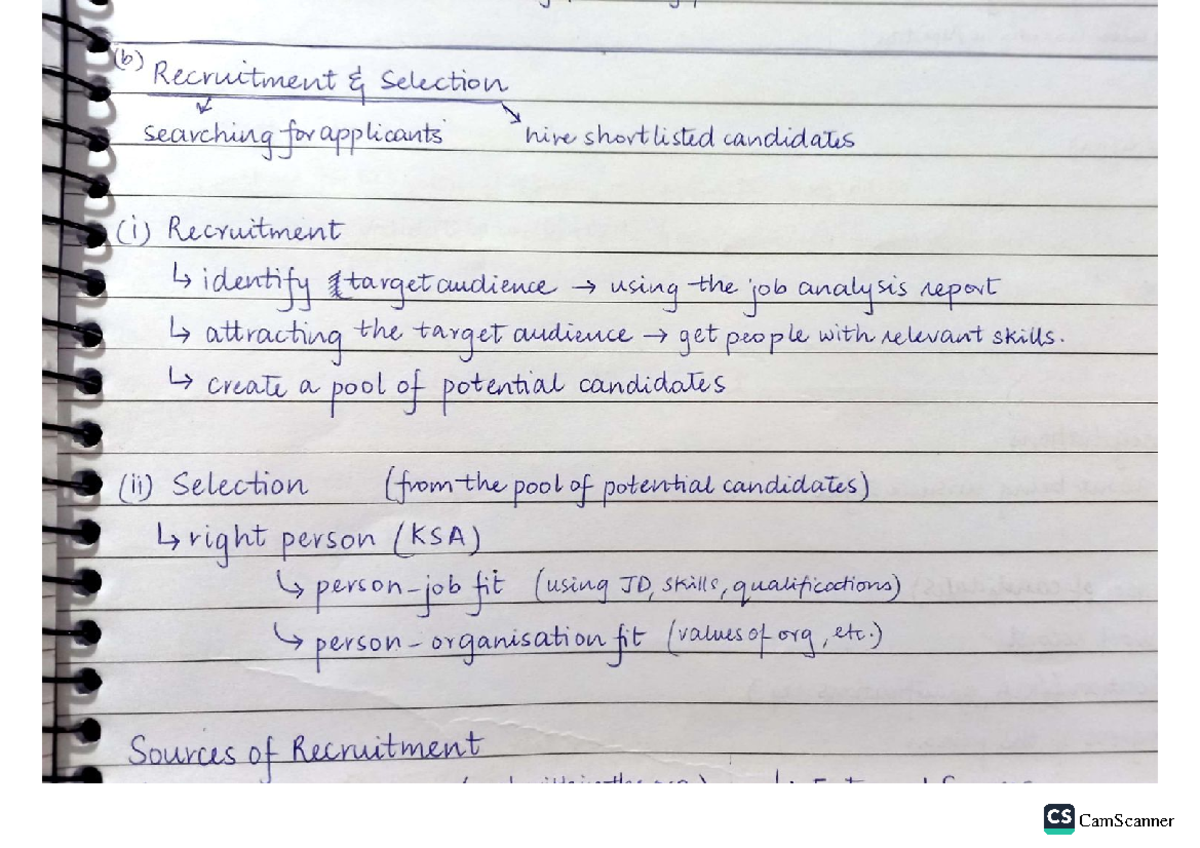 (b) Recruitment & Selection
searching for applicants hire shortlisted candidates
(i) Recruitment
↳ identify target audience → using the job analysis report
↳ attracting the target audience → get people with relevant skills.
↳ create a pool of potential candidates
(ii) Selection (from the pool of potential candidates)
↳ right person (KSA)
↳ person-job fit (using JD, skills, qualifications)
↳ person-organisation fit (values of org, etc.)
Sources of Recruitment
CS CamScanner